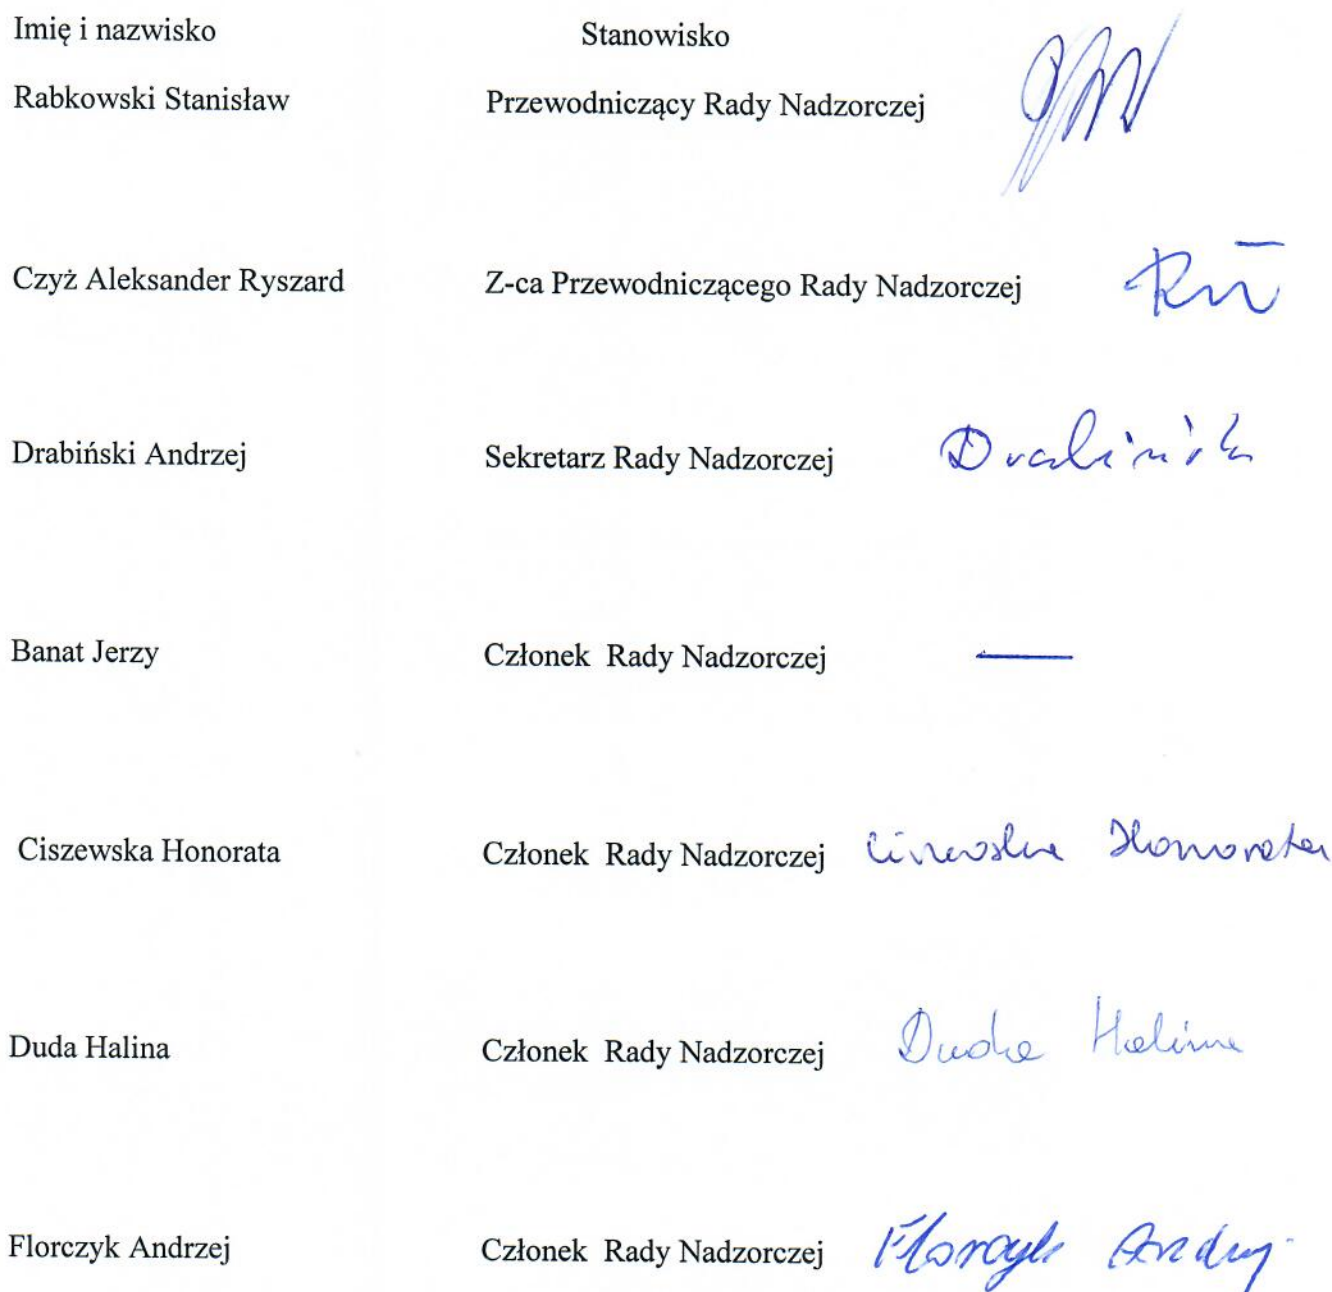 Imię i nazwisko Stanowisko
Rabkowski Stanisław Przewodniczący Rady Nadzorczej
Czyż Aleksander Ryszard Z-ca Przewodniczącego Rady Nadzorczej
Drabiński Andrzej Sekretarz Rady Nadzorczej Drabiński
Banat Jerzy Członek Rady Nadzorczej —
Ciszewska Honorata Członek Rady Nadzorczej Ciszewska Honorata
Duda Halina Członek Rady Nadzorczej Duda Halina
Florczyk Andrzej Członek Rady Nadzorczej Florczyk Andrzej